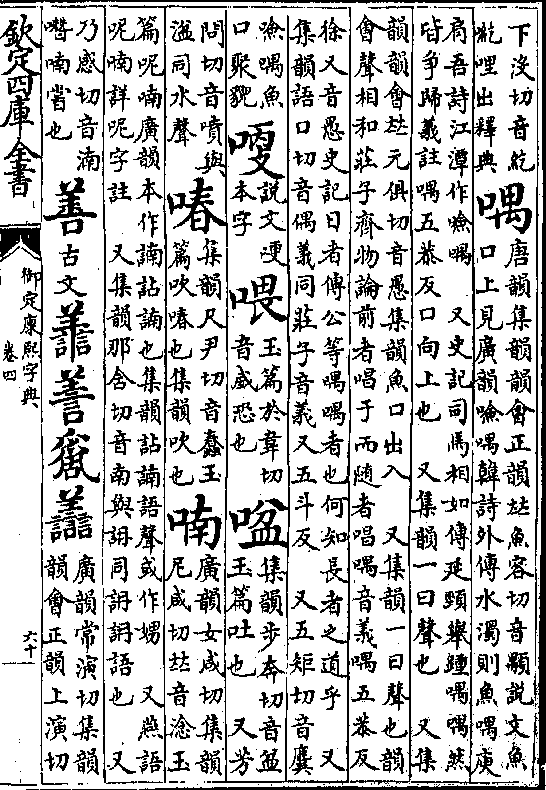 下沒切音紇
㖳哩出釋典
喁
唐韻集韻韻會正韻𠀤魚容切音顒說文魚
口上見廣韻噞喁韓詩外傳水濁則魚喁庾
肩吾詩江潭作噞喁 又史記司馬相如傳延頸舉踵喁喁然
皆爭歸義註喁五恭反口向上也 又集韻一曰聲也 又集
韻韻會𠀤元俱切音愚集韻魚口出入 又集韻一曰聲也韻
會聲相和莊子齊物論前者唱于而隨者唱喁音義喁五恭反
徐又音愚史記日者傳公等喁喁者也何知長者之道乎 又
集韻語口切音偶義同莊子音義又五斗反 又五矩切音麌
噞喁魚
口聚貌
說文哽
本字
喂
玉篇於韋切
音威恐也
㖹
集韻步奔切音盆
玉篇吐也 又芳
問切音噴與
湓同水聲
㖺
集韻尺尹切音蠢玉
篇吹㖺也集韻吹也
喃
廣韻女咸切集韻
尼咸切𠀤音諵玉
篇呢喃廣韻本作諵詀諵也集韻詀諵語聲或作娚 又燕語
呢喃詳呢字註 又集韻那含切音南與同語也 又
乃感切音湳
喃嘗也
善
古文
譱
廣韻常演切集韻
韻會正韻上演切
欽定四庫全書
御定康熙字典
卷四
六十